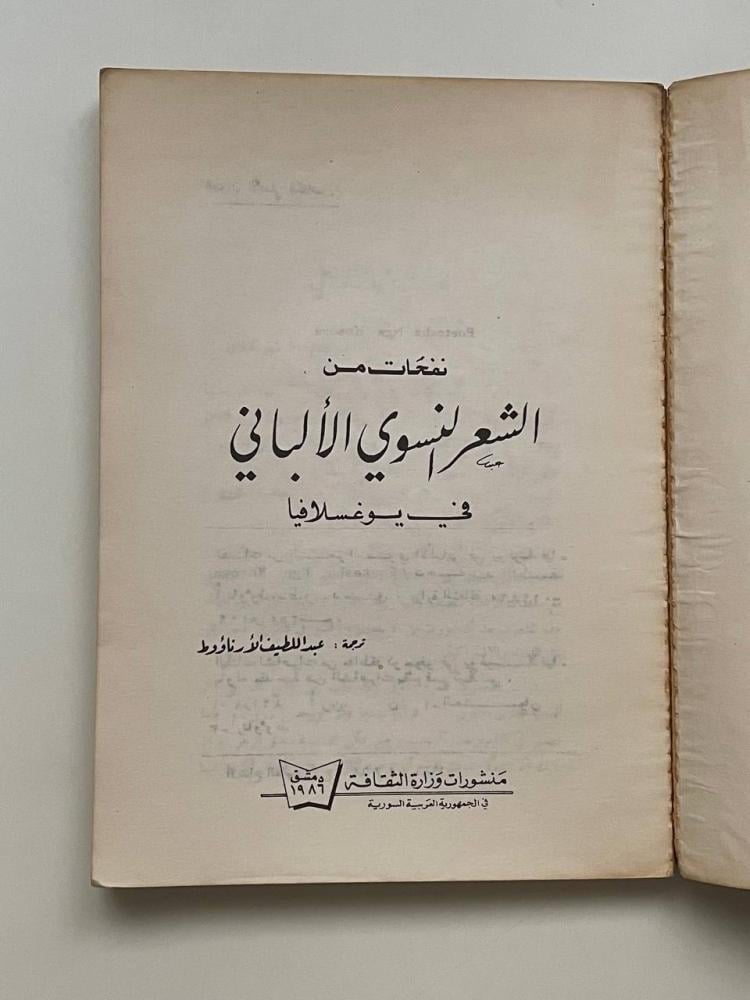 نفحَات من
الشعر النسوي الألباني
في يوغسلافيا
ترجمة: عبد اللطيف الأرناؤوط
منشورات وزارة الثقافة
في الجمهورية العربية السورية
دمشق
١٩٨٦